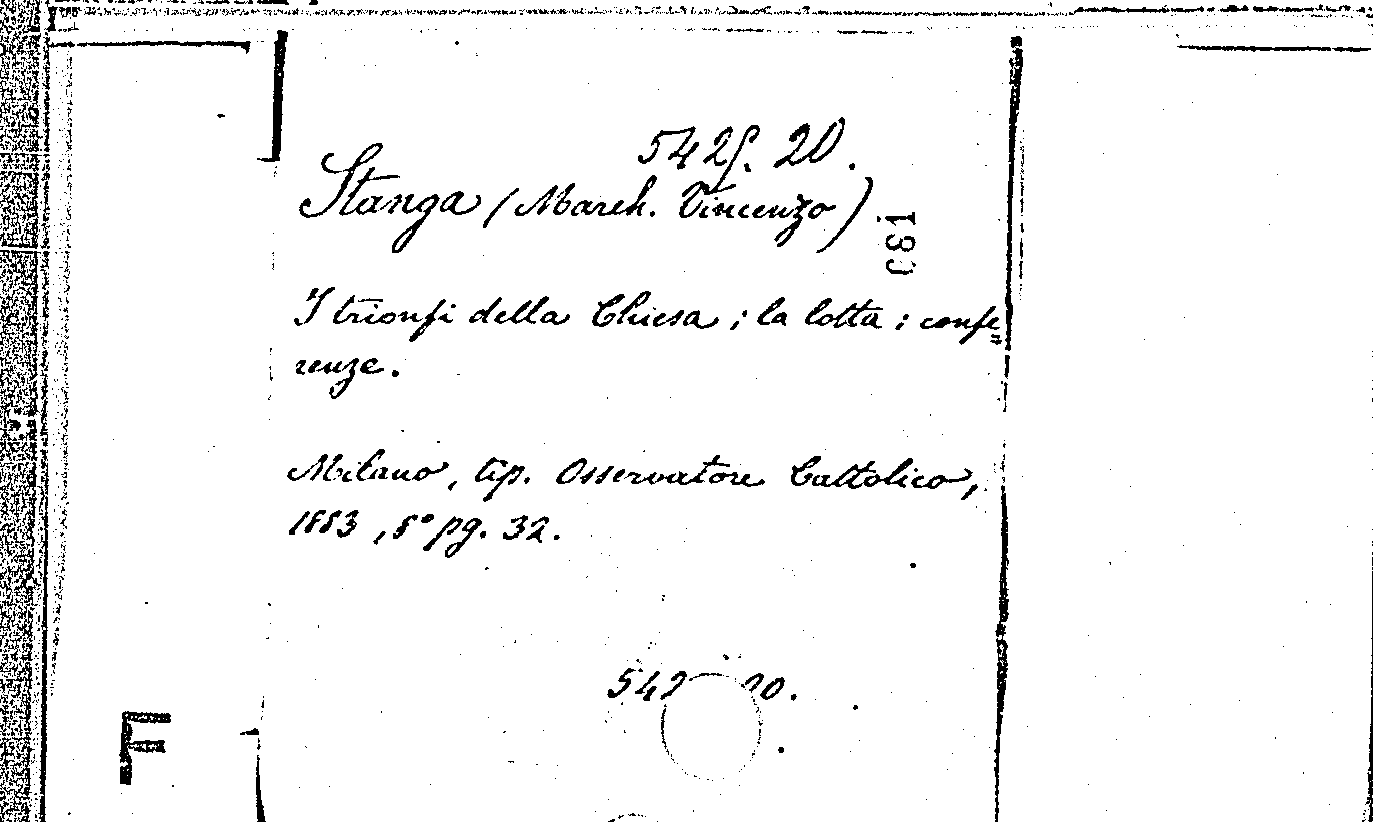 542f. 20.
Stanga (March. Vincenzo)
I trionfi della Chiesa; la lotta: confe=
renze.
Milano, tip. Osservatore Cattolico,
1883, 8° pg. 32.
542 20.
F